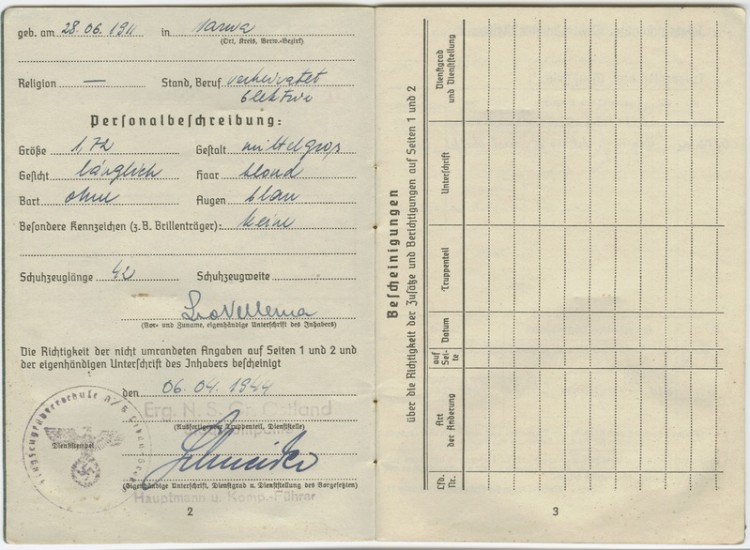 geb. am 28.06.1911 in Narwa
(Ort, Kreis, Verw.-Bezirk)
Religion — Stand, Beruf verheiratet
Personalbeschreibung:
Größe 1,72 Gestalt mittelgroß
Gesicht länglich Haar blond
Bart ohne Augen blau
Besondere Kennzeichen (z. B. Brillenträger): keine
Schuhzeuglänge 42 Schuhzeugweite
(Vor- und Zuname, eigenhändige Unterschrift des Inhabers)
Die Richtigkeit der nicht umrandeten Angaben auf Seiten 1 und 2 und
der eigenhändigen Unterschrift des Inhabers bescheinigt
den 06.04.1944
Erg. N. S. Gr. Ostland
(Ausfertigender Truppenteil, Dienststelle)
Dienststempel
(Eigenhändige Unterschrift, Dienstgrad u. Dienststellung des Vorgesetzten)
Hauptmann u. Komp.-Führer
2
Bescheinigungen
über die Richtigkeit der Zusätze und Berichtigungen auf Seiten 1 und 2
Lfd. Nr.
Art der Änderung
auf Seite
Datum
Truppenteil
Unterschrift
Dienstgrad und Dienststellung
3